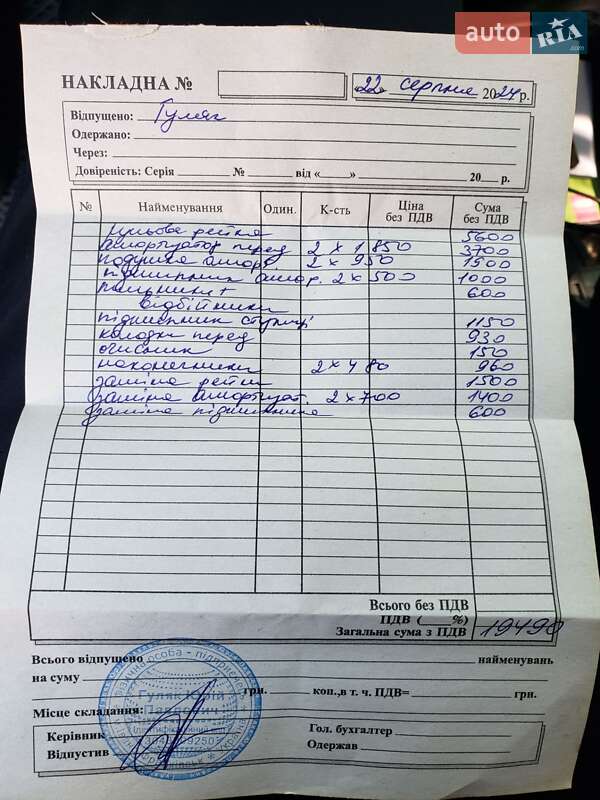 auto RIA.com
НАКЛАДНА №
22 серпня 2024 р.
Відпущено: Гуляк
Одержано:
Через:
Довіреність: Серія № від « » 20 р.
№ Найменування Один. К-сть Ціна без ПДВ Сума без ПДВ
рейка 5600
амортизатор перед 2 х 1 850 3700
подушка аморт. 2 х 950 1500
підшипник амор. 2 х 500 1000
пильник + 600
відбійники
підшипник ступиці 1150
колодки перед 930
очисник 150
наконечники 2 х 480 960
заміна рейки 1500
заміна амортизат. 2 х 700 1400
заміна підшипника 600
Всього без ПДВ
ПДВ ( %)
Загальна сума з ПДВ 19490
Всього відпущено найменувань
на суму грн. коп., в т. ч. ПДВ= грн.
Місце складання:
Керівник Гол. бухгалтер
Відпустив Одержав
Гуляк Юрій
Павлович